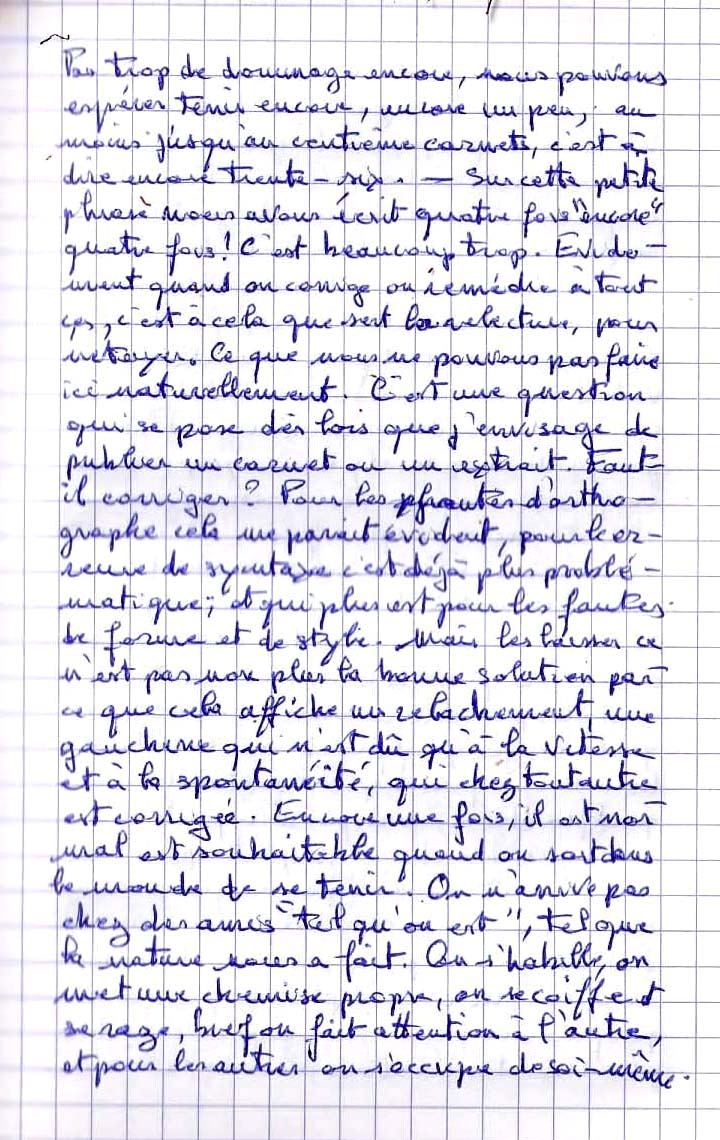 Pas trop de dommage encore, nous pouvons
espérer tenir encore, encore un peu, au
moins jusqu'au centième carnets, c'est à
dire encore trente-six. — Sur cette petite
phrase nous avons écrit quatre fois "encore"
quatre fois! C'est beaucoup trop. Evide-
ment quand on corrige on remédie à tout
ça, c'est à cela que sert la relecture, pour
nétoyer. Ce que nous ne pouvons pas faire
ici naturellement. C'est une question
qui se pose dès lors que j'envisage de
publier un carnet ou un extrait. Faut-
il corriger? Pour les fautes d'ortho-
graphe cela me parait évident, pour le er-
reurs de syntaxe c'est déjà plus problé-
matique; et qui plus est pour les fautes
de forme et de style. Mais les laisser ce
n'est pas non plus la bonne solution par
ce que cela affiche un relachement, une
gaucherie qui n'est dû qu'à la vitesse
et à la spontanéité, qui chez tout autre
est corrigée. Encore une fois, il est nor-
mal est souhaitable quand on sort dans
le monde de se tenir. On n'arrive pas
chez des amis "tel qu'on est", tel que
la nature nous a fait. On s'habille, on
met une chemise propre, on se coiffe et
se rase, bref on fait attention à l'autre,
et pour les autres on s'occupe de soi-même.